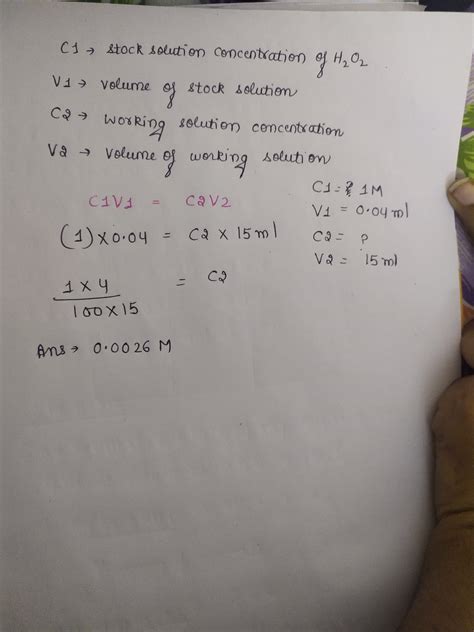 C1 → stock solution concentration of H₂O₂
V1 → Volume of stock solution
C2 → Working solution concentration
V2 → Volume of working solution
C1V1 = C2V2
(1) × 0.04 = C2 × 15 ml
1 × 4 / 100 × 15 = C2
Ans → 0.0026 M
C1 = 1M
V1 = 0.04 ml
C2 = ?
V2 = 15 ml